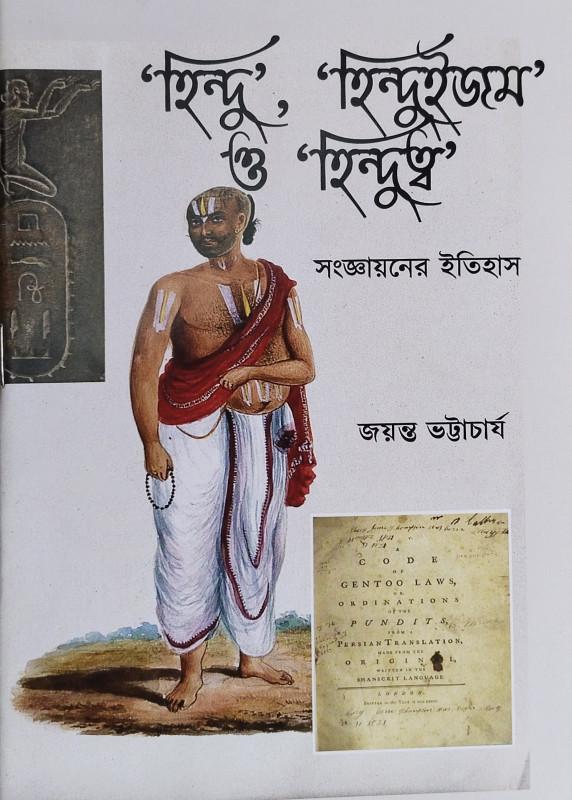 ‘হিন্দু’, ‘হিন্দুইজম’
ও ‘হিন্দুত্ব’
সংজ্ঞায়নের ইতিহাস
জয়ন্ত ভট্টাচার্য
A
CODE
OF
GENTOO LAWS,
OR,
ORDINATIONS
OF THE
PUNDITS,
FROM A
PERSIAN TRANSLATION,
MADE FROM THE
ORIGINAL,
WRITTEN IN THE
SHANSCRIT LANGUAGE
LONDON,
PRINTED in the YEAR